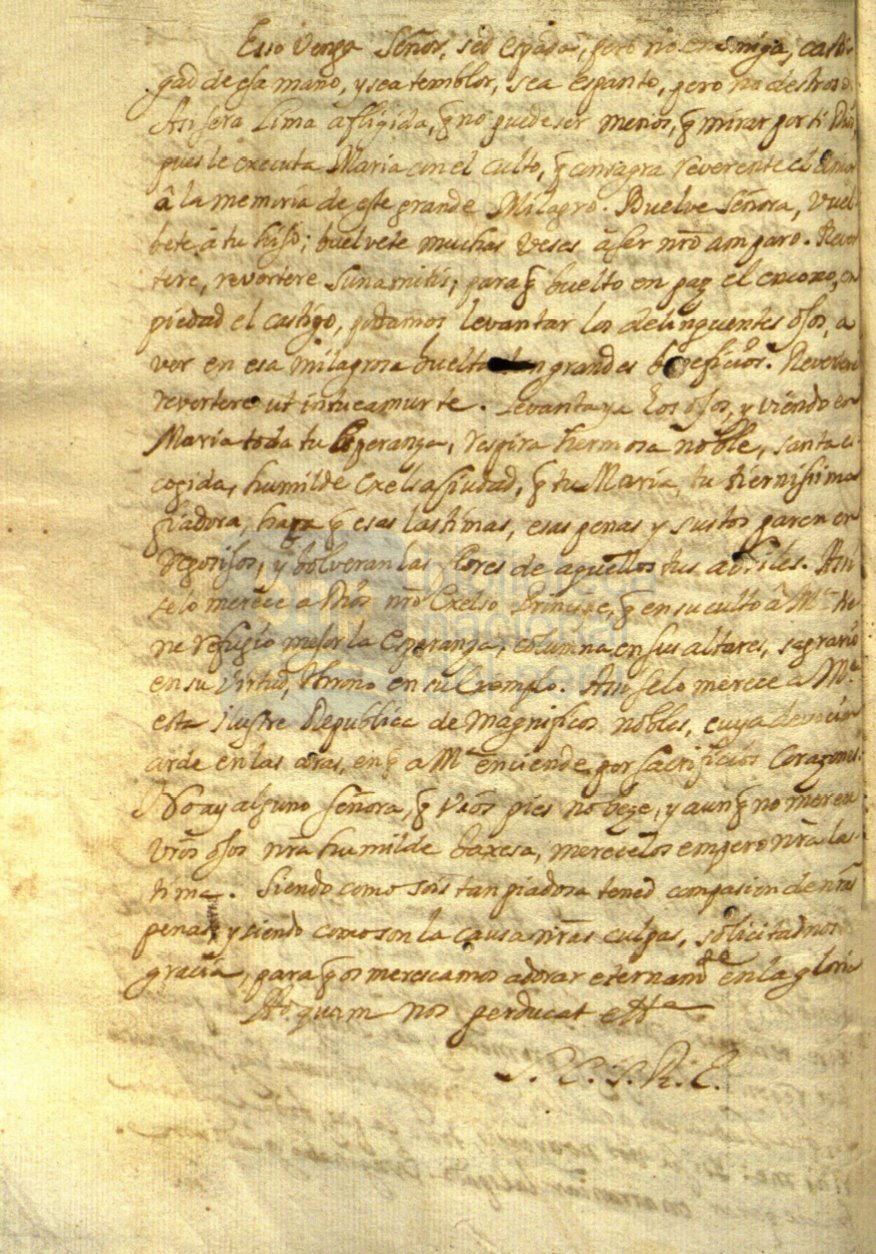 Esso vengo Señor, sed espada, pero no enemiga, casti-
gad de essa mano, y sea temblor, sea espanto, pero no destroso.
Assi sera Lima afligida, q̃ no puede ser menos, q̃ mirar por ti Dios,
pues le executa Maria con el culto, q̃ consagra reverente el
â la memoria de este grande Milagro. Buelve Señora, vuel-
bete â tu hijo; buelvete muchas veses â ser nr̃o amparo. Rever
tere, revertere sunamitis, para q̃ buelto en paz el encono, en
piedad el castigo, podamos levantar los delinquentes ojos, a
ver en esa milagrosa buelta grandes beneficios. Revertere
revertere ut intueamur te. Levanta ya los ojos, y viendo en
Maria toda tu Esperanza, respira hermosa noble, santa es-
cogida, humilde Excelsa Ciudad, q̃ tu Maria, tu tiernissima
fiadora, hara q̃ esas lastimas, esas penas y sustos paren en
regosijos, y bolveran las flores de aquellos tus abriles. Assi
se lo merece a Dios nr̃o Excelso Principe, q̃ en su culto â Mᵃ tie-
ne refugio mejor la Esperanza, columna en sus altares, sagrario
en su Virtud, throno en su Exemplo. Assi se lo merece a Mᵃ
esta ilustre Republica de magnificos nobles, cuya devocion
arde en las aras, en q̃ a Mᵃ enciende por sacrificios Corazones.
No ay alguno señora, q̃ vr̃os pies no beze, y aun q̃ no meren
vr̃os ojos nr̃a humilde baxesa, merecelos empero nr̃a las-
tima. Siendo como sois tan piadosa tened compasion de nr̃as
penas, y siendo como son la causa nr̃as culpas, solicitadnos
gracia, para q̃ os merescamos adorar eternamᵗᵉ en la gloria
Ad quam nos perducat ettᵃ
S. C. S. R. E.